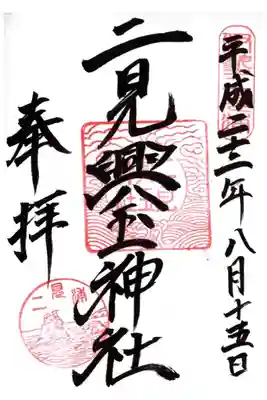 平成二十二年八月十五日
二見興玉神社
奉拝
二見浦